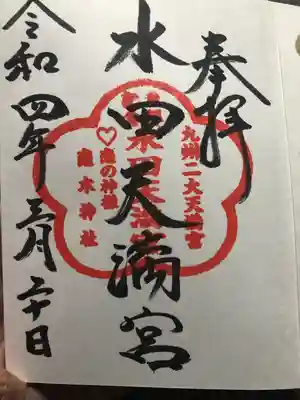 奉拝
九州二大天満宮
水田天満宮
恋の神社
恋木神社
令和四年三月二十日